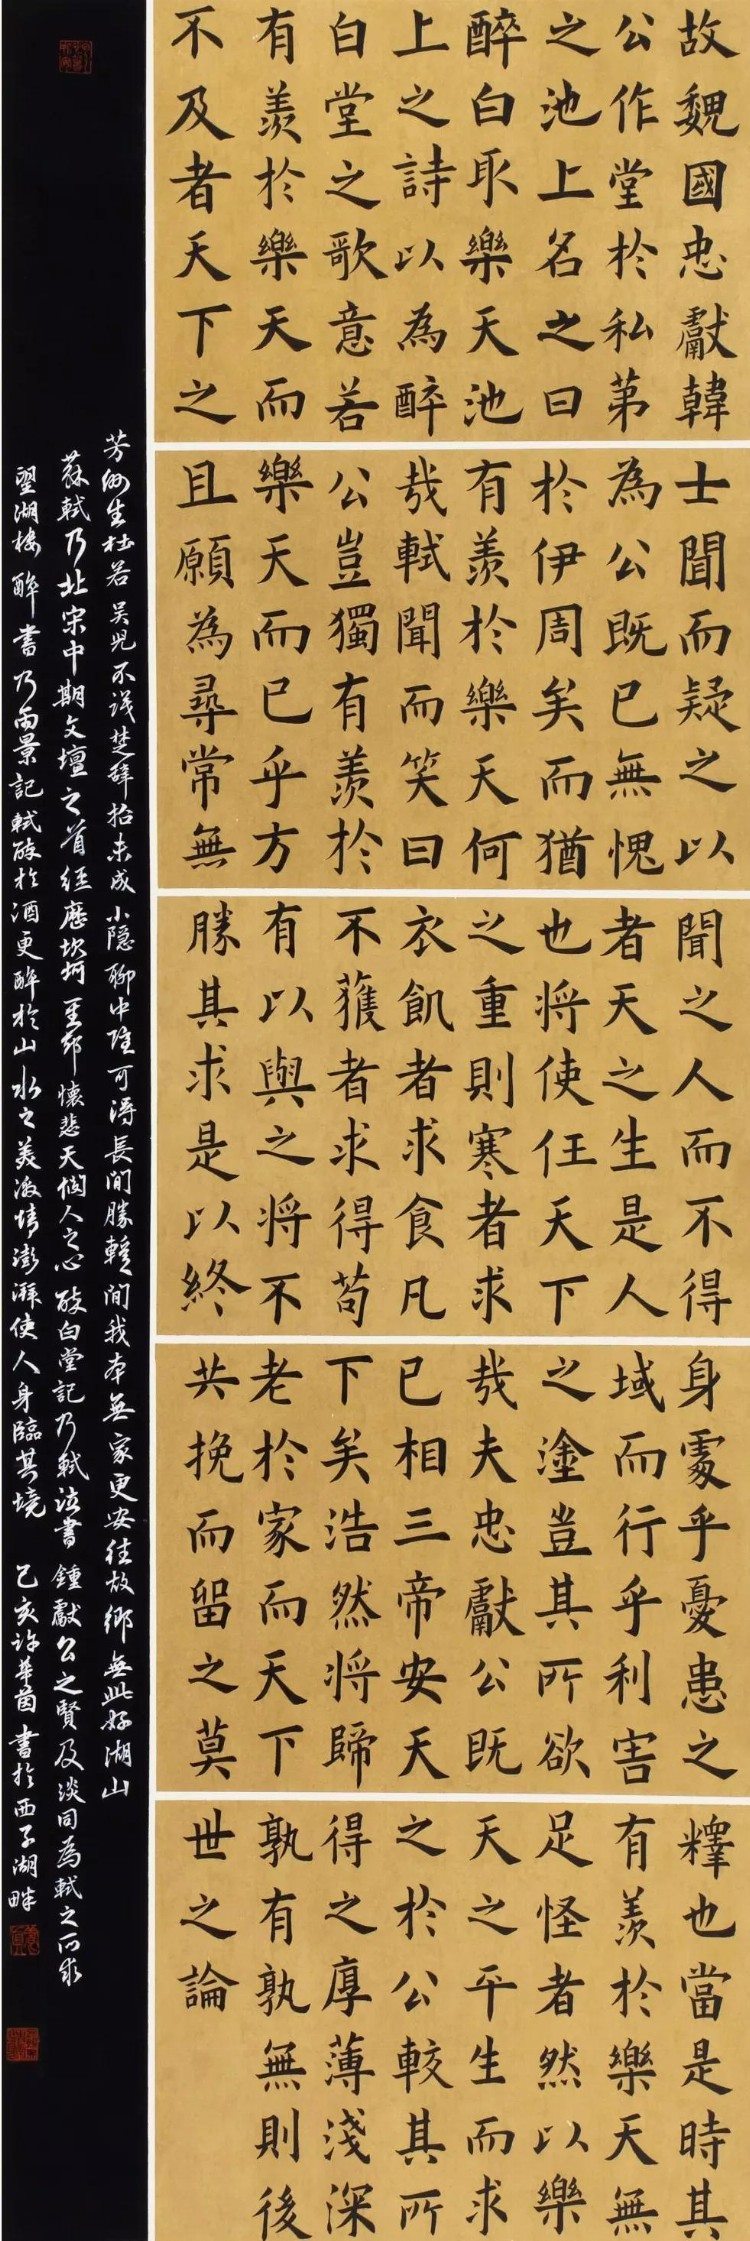 故魏國忠獻韓
公作堂於私第
之池上名之曰
醉白取樂天池
上之詩以為醉
白堂之歌意若
有羨於樂天而
不及者天下之
士聞而疑之以
為公既已無愧
於伊周矣而猶
有羨於樂天何
哉軾聞而笑曰
公豈獨有羨於
樂天而已乎方
且願為尋常無
聞之人而不得
者天之生是人
也將使任天下
之重則寒者求
衣飢者求食凡
不獲者求得苟
有以與之將不
勝其求是以終
身處乎憂患之
域而行乎利害
之塗豈其所欲
哉夫忠獻公既
已相三帝安天
下矣浩然將歸
老於家而天下
共挽而留之莫
釋也當是時其
有羨於樂天無
足怪者然以樂
天之平生而求
之於公較其所
得之厚薄淺深
孰有孰無則後
世之論
芳洲生杜若吳兒不識楚辭招未成小隱聊中隱可得長閒勝暫閒我本無家更安往故鄉無此好湖山
蘇軾乃北宋中期文壇之首經歷坎坷懷悲天憫人之心醉白堂記乃軾法書獻公之賢及淡同為軾之所求
望湖樓醉書乃雨景記軾醉於酒更醉於山水之美激情澎湃使人身臨其境 己亥許華茵書於西子湖畔